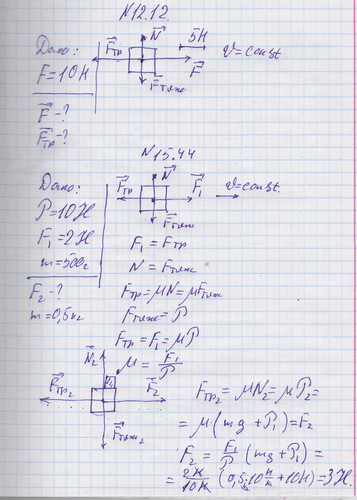 N12.12.
Дано:
F=10Н
F⃗-?
F⃗тр-?
F⃗тр
N⃗
5Н
F⃗
F⃗тяж
v⃗=const.
N15.44
Дано:
P=10Н
F₁=2Н
m=500г
F₂-?
m=0,5кг
F⃗тр
N⃗
F⃗₁
F⃗тяж
v⃗=const.
F₁=Fтр
N=Fтяж
Fтр=μN=μFтяж
Fтяж=P
Fтр=F₁=μP
μ=F₁/P
N⃗₂
F⃗тр₂
F⃗₂
F⃗тяж₂
Fтр₂=μN₂=μP₂=
=μ(mg+P₁)=F₂
F₂=F₁/P(mg+P₁)=
=2Н/10Н(0,5·10Н/кг+10Н)=3Н.